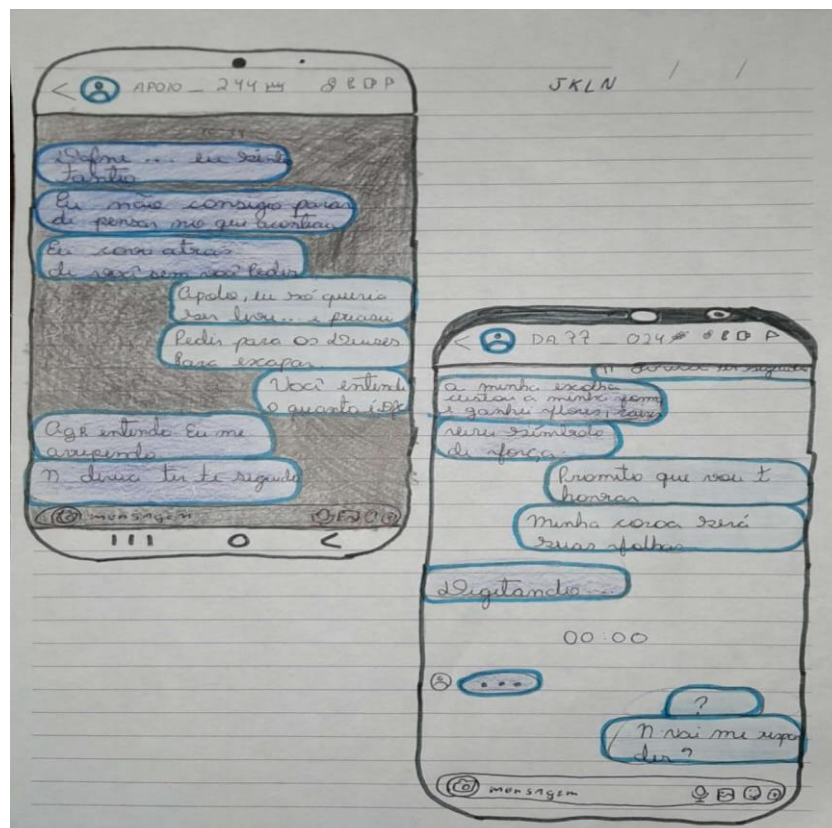 APOLO _ 244
JKLN / /
Dafne ... eu sinto
Tanto
Eu não consigo parar
di pensar no que aconteceu
Eu corri atras
de você sem você Pedir
Apolo, eu só queria
ser livre... e precisei
Pedir para os Deuses
Para escapar
Você entende
o quanto é
Agr entendo Eu me
arrependo
n devia ter te seguido
mensagem
DA77 _ 024
n devia ter seguido
a minha escolha
custou a minha forma
e ganhei flores, raizes
virei símbolo
de força
Promito que vou t
honrar
Minha coroa será
suas folhas
Digitando...
00:00
...
?
n vai me respon
der?
mensagem